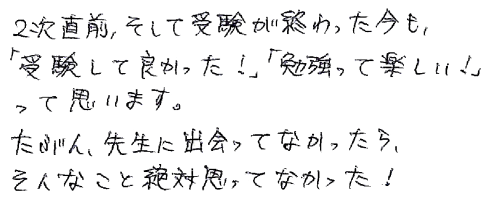 2次直前,そして受験が終わった今も,
「受験して良かった!」「勉強って楽しい!」
って思います。
たぶん、先生に出会ってなかったら、
そんなこと絶対思ってなかった!